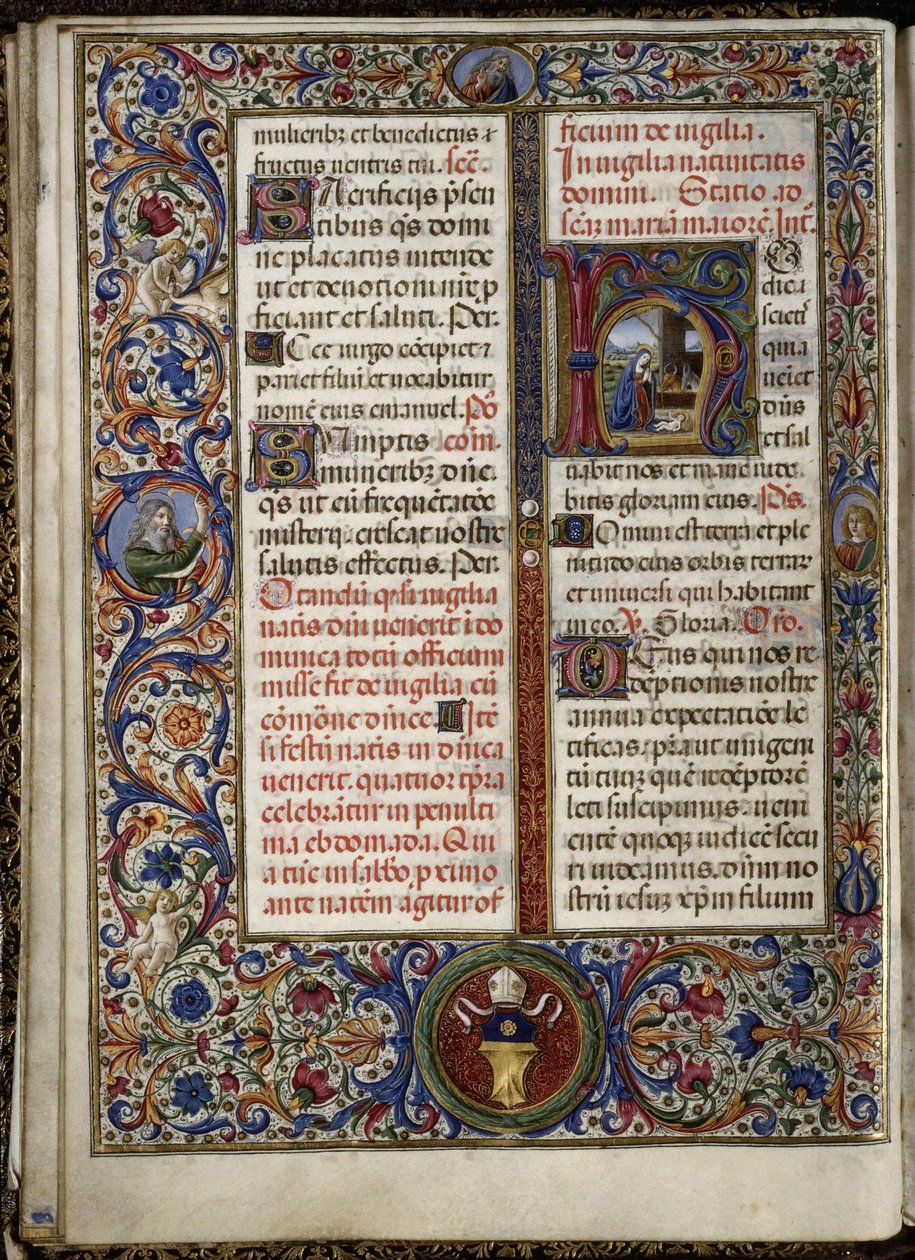 mulieribꝫ et benedictus ⁊
fructus uentris tui. Sec̄.
SAcrificijs p̄sen
tibus q̄s domi
ne placatus intende
ut et deuotioni nr̄e ꝓ
ficiant et saluti. Per.
ECce uirgo cōcipiet ⁊
pariet filiū et uocabitur
nomē eius emanuel. Pō
SVmptis com̄.
muneribꝫ dn̄e
q̄s ut cū frequētatōe
misterij crescat nostre
salutis effectus. Per.
Notandū q si uigilia
natiuis dn̄i uenerit ī do
minica totū officium
misse fit de uigilia cū
cōmōne dn̄ice. Itē
si festū natiuis in dn̄ica
uenerit. quatuor tp̄ra
celebrātur in penulti
ma ebdomada. Qui
a tūc in sabbō proximo
ante natēm agitur of
ficium de uigilia.
In uigilia natiuitatis
domini. Statio ad
scāꝫ mariā maiorē. Int̄.
HOdie
scietis
quia
ueniet
dn̄s
et sal
uabit nos et mane uide
bitis gloriam eius. Ps̄.
DOmini est terra et ple
nitudo eius orbis terrarꝫ
et uniuersi qui habitant
in eo. ℣. Gloria. Oro.
DEus qui nos re
deptionis nostre
annua expectatiōe le
tificas. prā ut unigeni
tū tuuꝫ quē redēptorē
leti suscipimus. ueni
entē quoqꝫ iudicē secu
ri uideamus. dn̄m no
strū iesuꝫ xp̄m filium